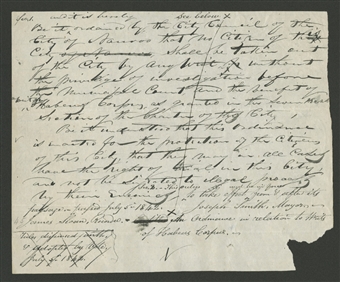 and it is hereby See below X
Be it ordained by the City Council of the
City of Nauvoo, that no Citizen of this
City shall be taken out
of the City by any Writ without
the privilege of investigation before
the Municipal Court and the benefit of
Habeus Corpus, as granted in the
Section of the Charter of this City,
Be it understood that this Ordinance
is enacted for the protection of the Citizens
of this City, that they may in all Cases
have the right of trial in this City
and not be subjected to illegal process
by their Enemies
passage. Passed July 5th 1842. Joseph Smith, Mayor
James Sloan, Recorder. X An Ordinance in relation to Writs
of Habeas Corpus
July 5th 1842